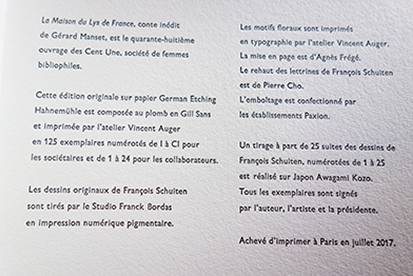 La Maison du Lys de France, conte inédit
de Gérard Manset, est le quarante-huitième
ouvrage des Cent Une, société de femmes
bibliophiles.
Cette édition originale sur papier German Etching
Hahnemühle est composée au plomb en Gill Sans
et imprimée par l'atelier Vincent Auger
en 125 exemplaires numérotés de I à CI pour
les sociétaires et de 1 à 24 pour les collaborateurs.
Les dessins originaux de François Schuiten
sont tirés par le Studio Franck Bordas
en impression numérique pigmentaire.
Les motifs floraux sont imprimés
en typographie par l'atelier Vincent Auger.
La mise en page est d'Agnès Frégé.
Le rehaut des lettrines de François Schuiten
est de Pierre Cho.
L'emboîtage est confectionné par
les établissements Paxion.
Un tirage à part de 25 suites des dessins de
François Schuiten, numérotées de 1 à 25
est réalisé sur Japon Awagami Kozo.
Tous les exemplaires sont signés
par l'auteur, l'artiste et la présidente.
Achevé d'imprimer à Paris en juillet 2017.